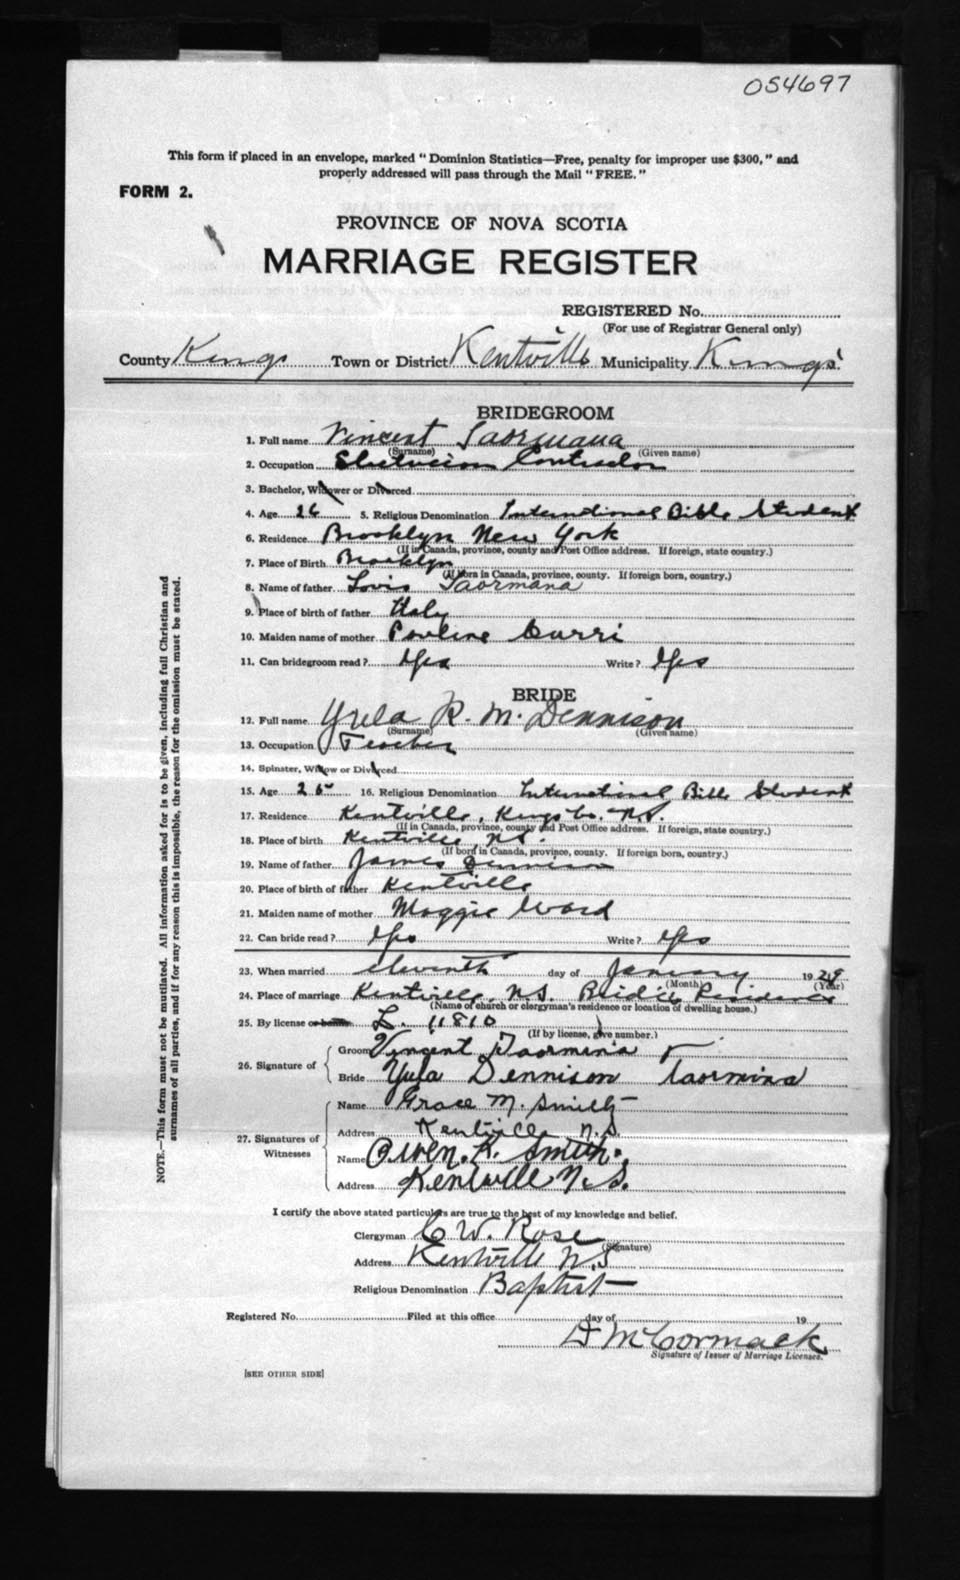 054697
This form if placed in an envelope, marked "Dominion Statistics—Free, penalty for improper use $300," and
properly addressed will pass through the Mail "FREE."
FORM 2.
PROVINCE OF NOVA SCOTIA
MARRIAGE REGISTER
REGISTERED No.
(For use of Registrar General only)
County Kings Town or District Kentville Municipality Kings
BRIDEGROOM
1. Full name Vincent Taormana
(Surname) (Given name)
2. Occupation Electrician Contractor
3. Bachelor, Widower or Divorced
4. Age 26 5. Religious Denomination International Bible Student
6. Residence Brooklyn New York
(If in Canada, province, county and Post Office address. If foreign, state country.)
7. Place of Birth Brooklyn
(If born in Canada, province, county. If foreign born, country.)
8. Name of father Lovis Taormana
9. Place of birth of father Italy
10. Maiden name of mother Pauline Curri
11. Can bridegroom read? Yes Write? Yes
BRIDE
12. Full name Yula R. M. Dennison
(Surname) (Given name)
13. Occupation Teacher
14. Spinster, Widow or Divorced
15. Age 25 16. Religious Denomination International Bible Student
17. Residence Kentville, Kings Co. N.S.
(If in Canada, province, county and Post Office address. If foreign, state country.)
18. Place of birth Kentville, N.S.
(If born in Canada, province, county. If foreign born, country.)
19. Name of father James Dennison
20. Place of birth of father Kentville
21. Maiden name of mother Maggie Ward
22. Can bride read? Yes Write? Yes
23. When married eleventh day of January 1929
(Month) (Year)
24. Place of marriage Kentville, N.S. Bride's Residence
(Name of church or clergyman's residence or location of dwelling house.)
25. By license or banns L. 11810
(If by license, give number.)
26. Signature of
Groom Vincent Taormina
Bride Yula Dennison Taormina
27. Signatures of Witnesses
Name Grace M. Smith
Address Kentville N.S.
Name Owen. R. Smith
Address Kentville N.S.
I certify the above stated particulars are true to the best of my knowledge and belief.
Clergyman C W. Rose
(Signature)
Address Kentville N.S
Religious Denomination Baptist
Registered No. Filed at this office day of 19
D McCormack
Signature of Issuer of Marriage Licenses.
[SEE OTHER SIDE]
NOTE.—This form must not be mutilated. All information asked for is to be given, including full Christian and
surnames of all parties, and if for any reason this is impossible, the reason for the omission must be stated.